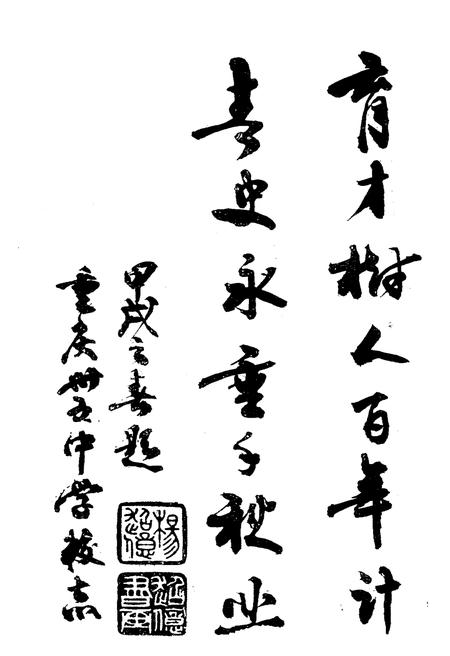 育才树人百年计
青史永垂千秋业
甲戌之春题
重庆卅五中学校志